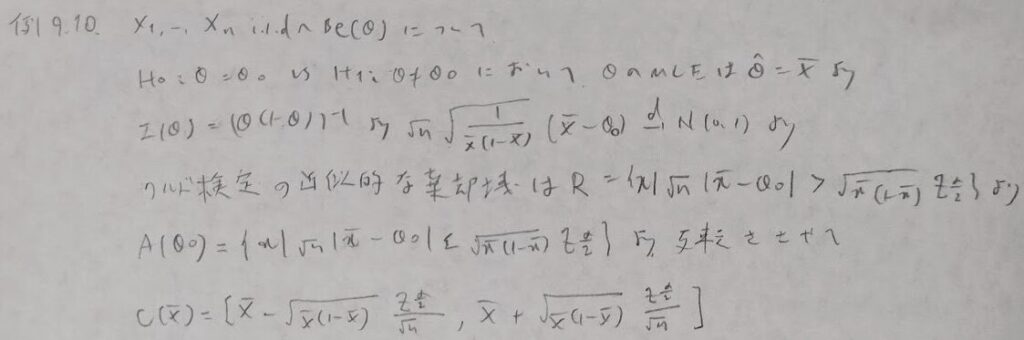 例9.10. X1,…, Xn i.i.d ~ Be(θ) について
H0 : θ = θ0 vs H1 : θ ≠ θ0 において θのMLEは θ̂ = X̄ より
I(θ) = (θ(1-θ))^-1 より √n √(1/(x̄(1-x̄))) (x̄-θ0) →d N(0,1) より
ワルド検定の近似的な棄却域は R = {x| √n |x̄-θ0| > √(x̄(1-x̄)) Z_{α/2}} より
A(θ0) = {x| √n |x̄-θ0| ≤ √(x̄(1-x̄)) Z_{α/2}} より 反転させて
C(x̄) = [x̄ - √(x̄(1-x̄)) Z_{α/2}/√n , x̄ + √(x̄(1-x̄)) Z_{α/2}/√n ]